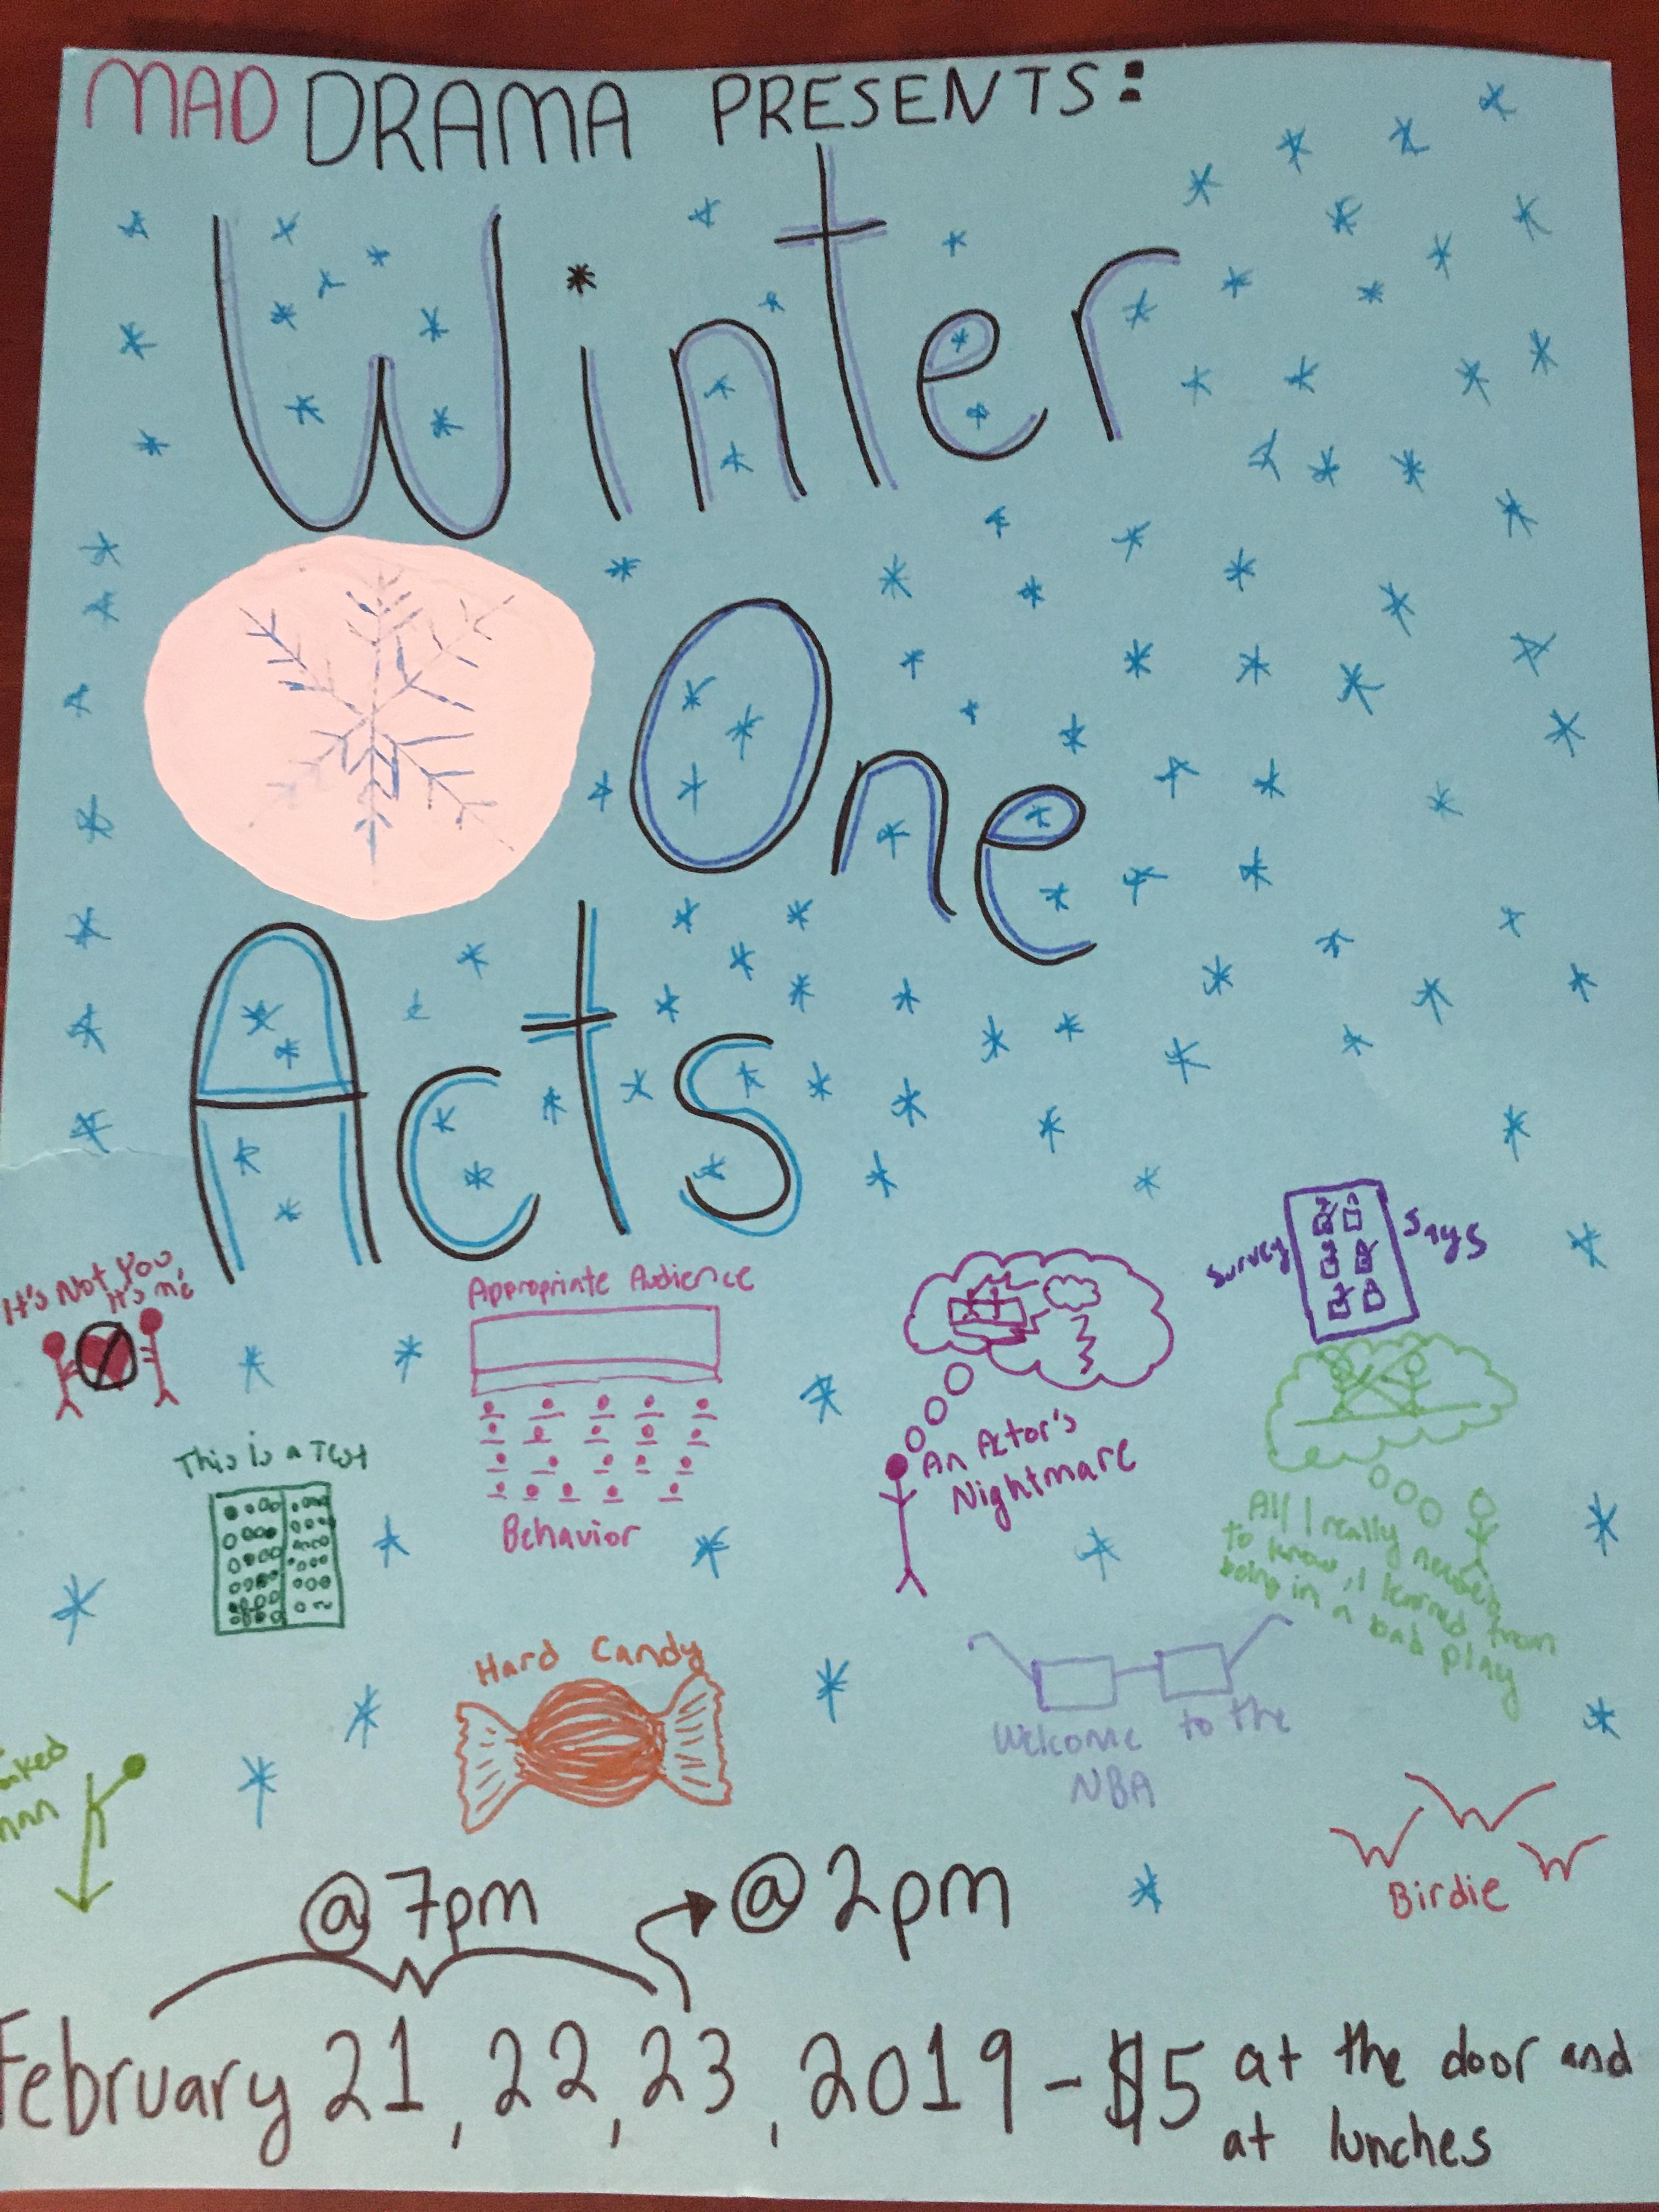 MAD DRAMA PRESENTS:
Winter
One
Acts
Survey Says
It's Not You
it's me
Appropriate Audience
Behavior
An Actor's
Nightmare
This is a Test
All I really needed
to know, I learned from
being in a bad play
Hard Candy
Welcome to the
NBA
Birdie
@ 7pm
@ 2pm
February 21, 22, 23, 2019 - $5 at the door and
at lunches